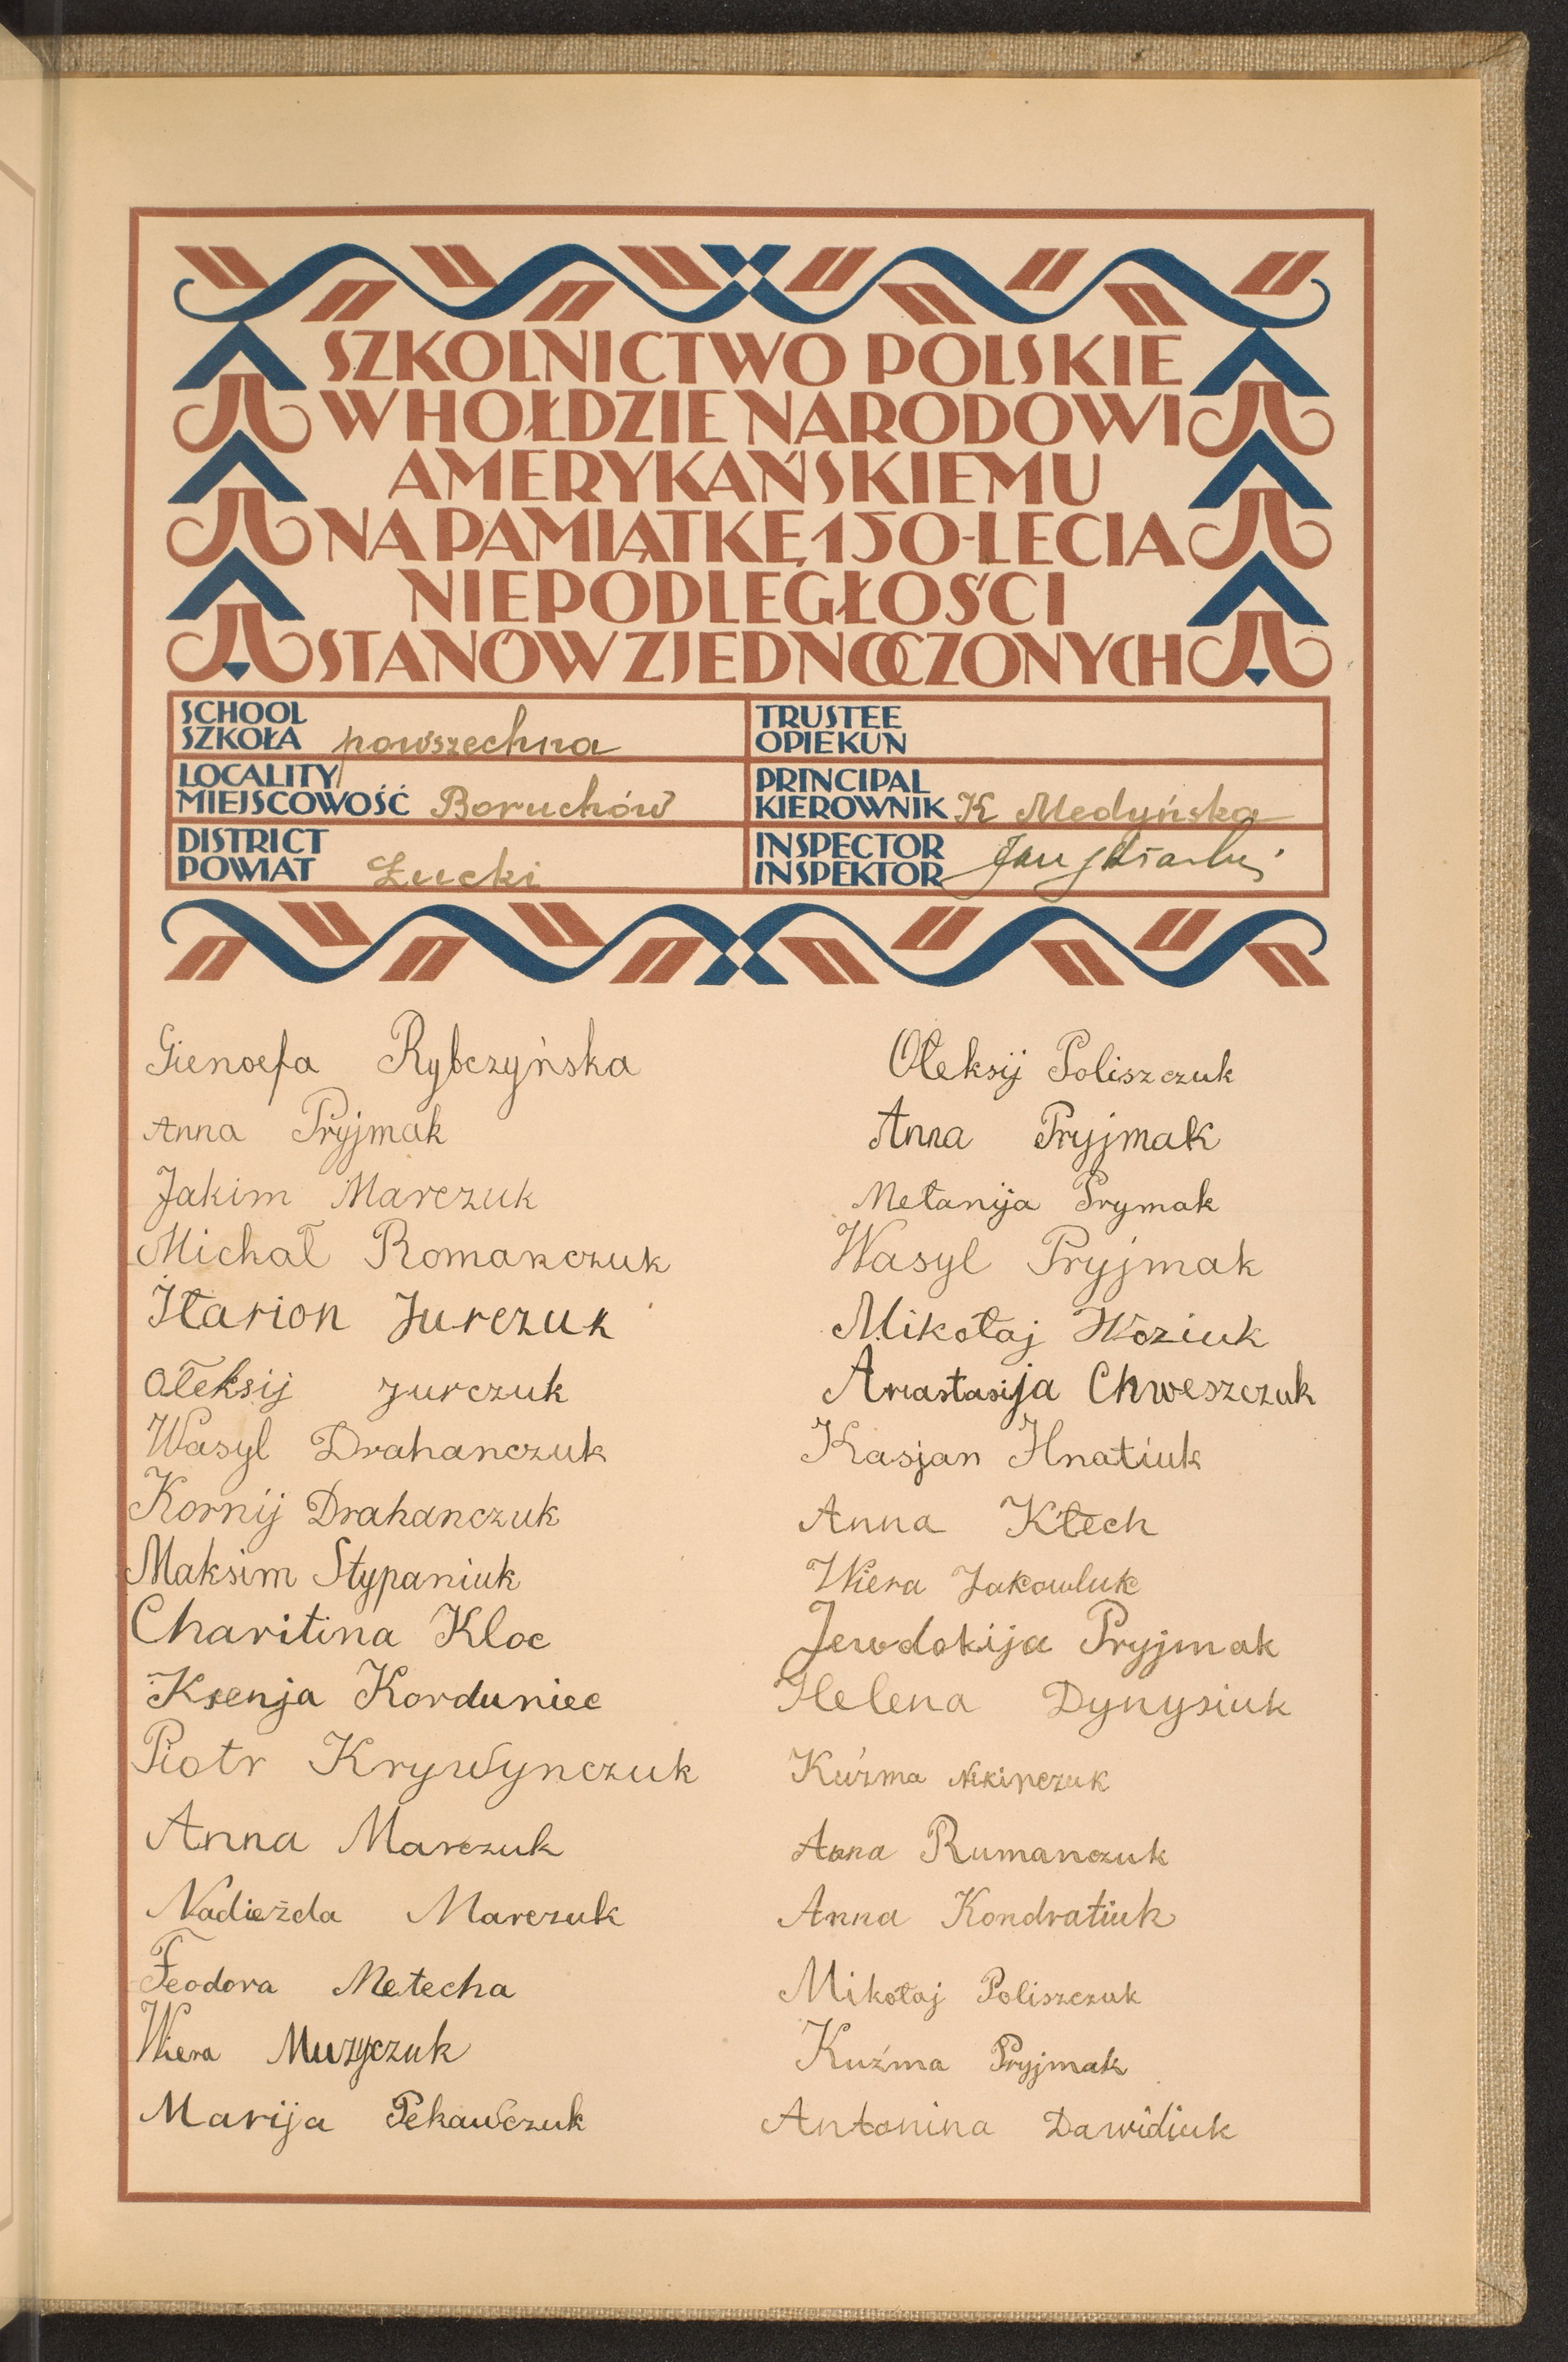 SZKOLNICTWO POLSKIE
W HOŁDZIE NARODOWI
AMERYKAŃSKIEMU
NA PAMIĄTKĘ 150-LECIA
NIEPODLEGŁOŚCI
STANÓW ZJEDNOCZONYCH
SCHOOL
SZKOŁA powszechna
LOCALITY
MIEJSCOWOŚĆ Boruchów
DISTRICT
POWIAT Łucki
TRUSTEE
OPIEKUN
PRINCIPAL
KIEROWNIK K Medyńska
INSPECTOR
INSPEKTOR Jan
Gienoefa Rybczyńska
Anna Pryjmak
Jakim Marczuk
Michał Romanczuk
Iłarion Jurczuk
Ołeksij Jurczuk
Wasyl Drahanczuk
Kornij Drahanczuk
Maksim Stypaniuk
Charitina Kloc
Ksenja Korduniec
Piotr Krywynczuk
Anna Marczuk
Nadieżda Marczuk
Feodora Metecha
Wiera Muzyczuk
Marija Pekawczuk
Ołeksij Poliszczuk
Anna Pryjmak
Mełanija Prymak
Wasyl Pryjmak
Mikołaj Woziuk
Anastasija Chweszczuk
Kasjan Hnatiuk
Anna Kłech
Wiera Jakowluk
Jewdokija Pryjmak
Helena Dynysiuk
Kuźma
Anna Rumanczuk
Anna Kondratiuk
Mikołaj Poliszczuk
Kuźma Pryjmak
Antonina Dawidiuk